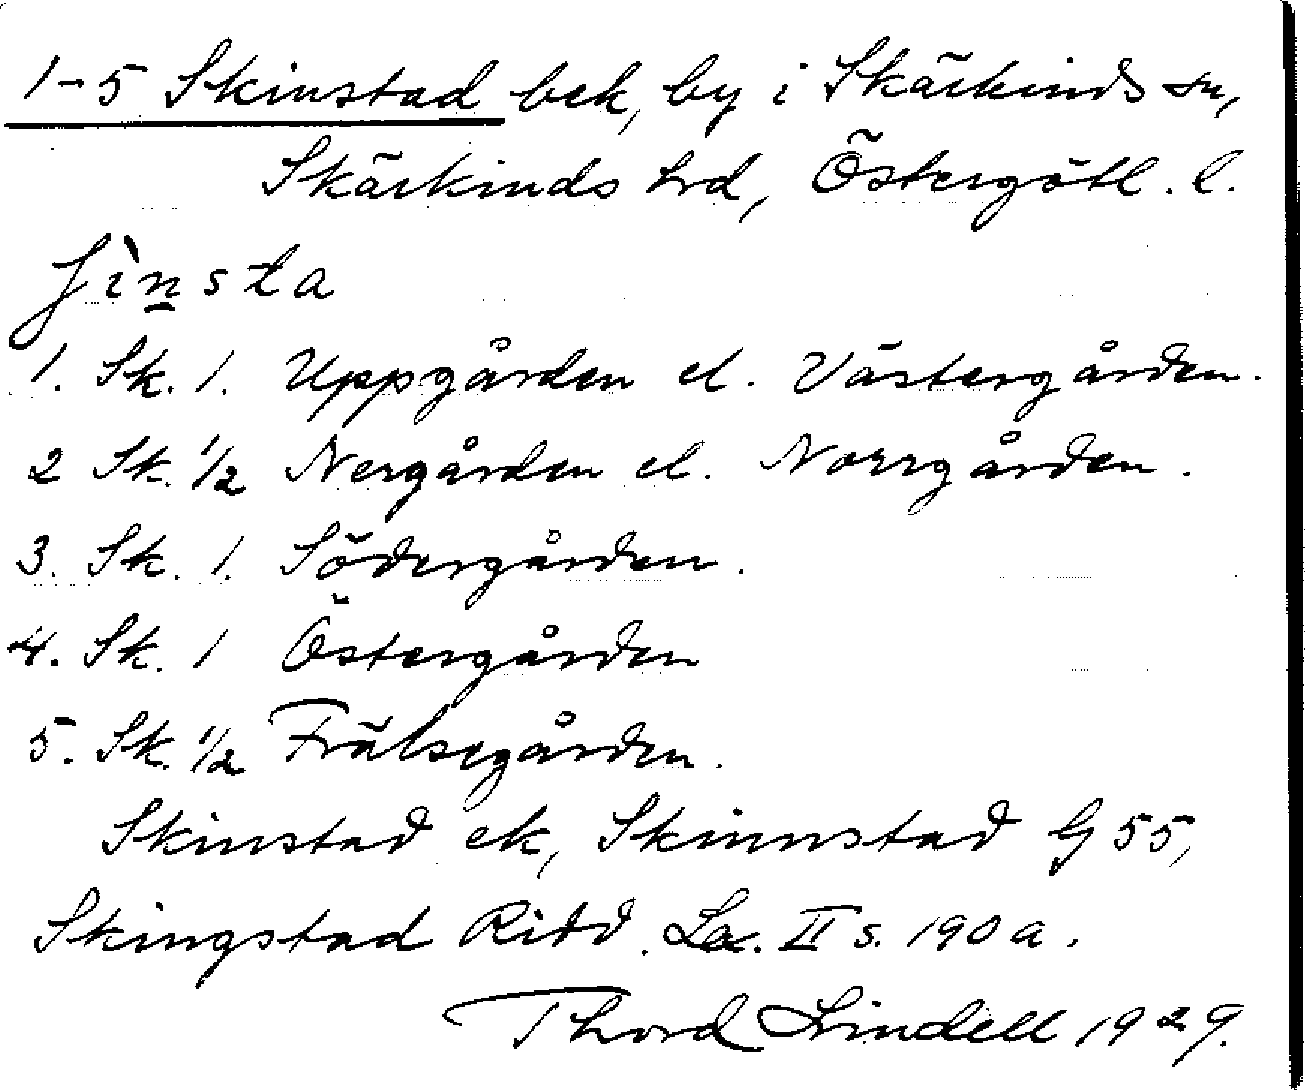 1-5 Skinstad bek, by i Skärkinds sn,
Skärkinds hd, Östergötl. l.
ʃìnsta
1. Sk. 1. Uppgården el. Västergården.
2 Sk. 1/2 Nergården el. Norrgården.
3. Sk. 1. Södergården.
4. Sk. 1 Östergården
5. Sk. 1/2 Frälsegården.
Skinstad ek, Skinnstad G 55,
Skingstad Ridd. La. II s. 190 a.
Thord Lindell 1929.